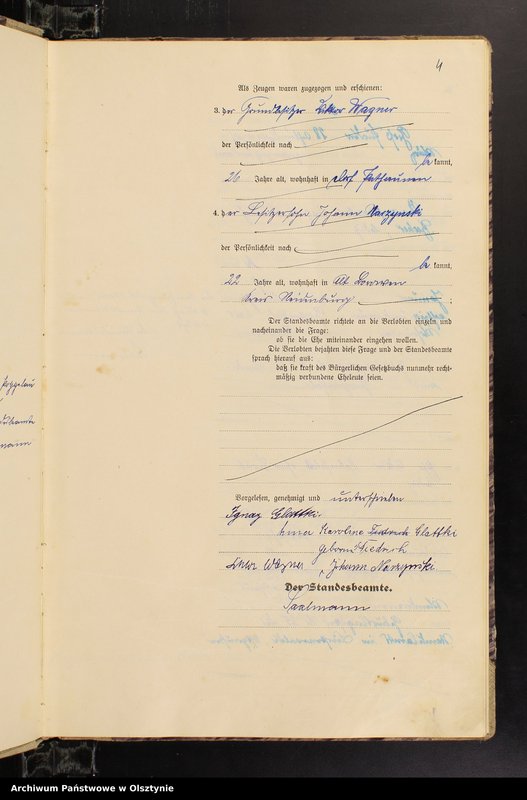 4
Als Zeugen waren zugezogen und erschienen:
3. der Grundbesitzer Viktor Wagner
der Persönlichkeit nach
be kannt,
26 Jahre alt, wohnhaft in Dorf
4. der Besitzersohn Johann Narzynski
der Persönlichkeit nach
be kannt,
22 Jahre alt, wohnhaft in Alt
Kreis Neidenburg
Der Standesbeamte richtete an die Verlobten einzeln und
nacheinander die Frage:
ob sie die Ehe miteinander eingehen wollen.
Die Verlobten bejahten diese Frage und der Standesbeamte
sprach hierauf aus:
daß sie kraft des Bürgerlichen Gesetzbuchs nunmehr recht-
mäßig verbundene Eheleute seien.
Vorgelesen, genehmigt und unterschrieben
Ignaz Glattki.
Karoline Glattki
geborene
Viktor Wagner, Johann Narzynski.
Der Standesbeamte.
Saalmann
Archiwum Państwowe w Olsztynie